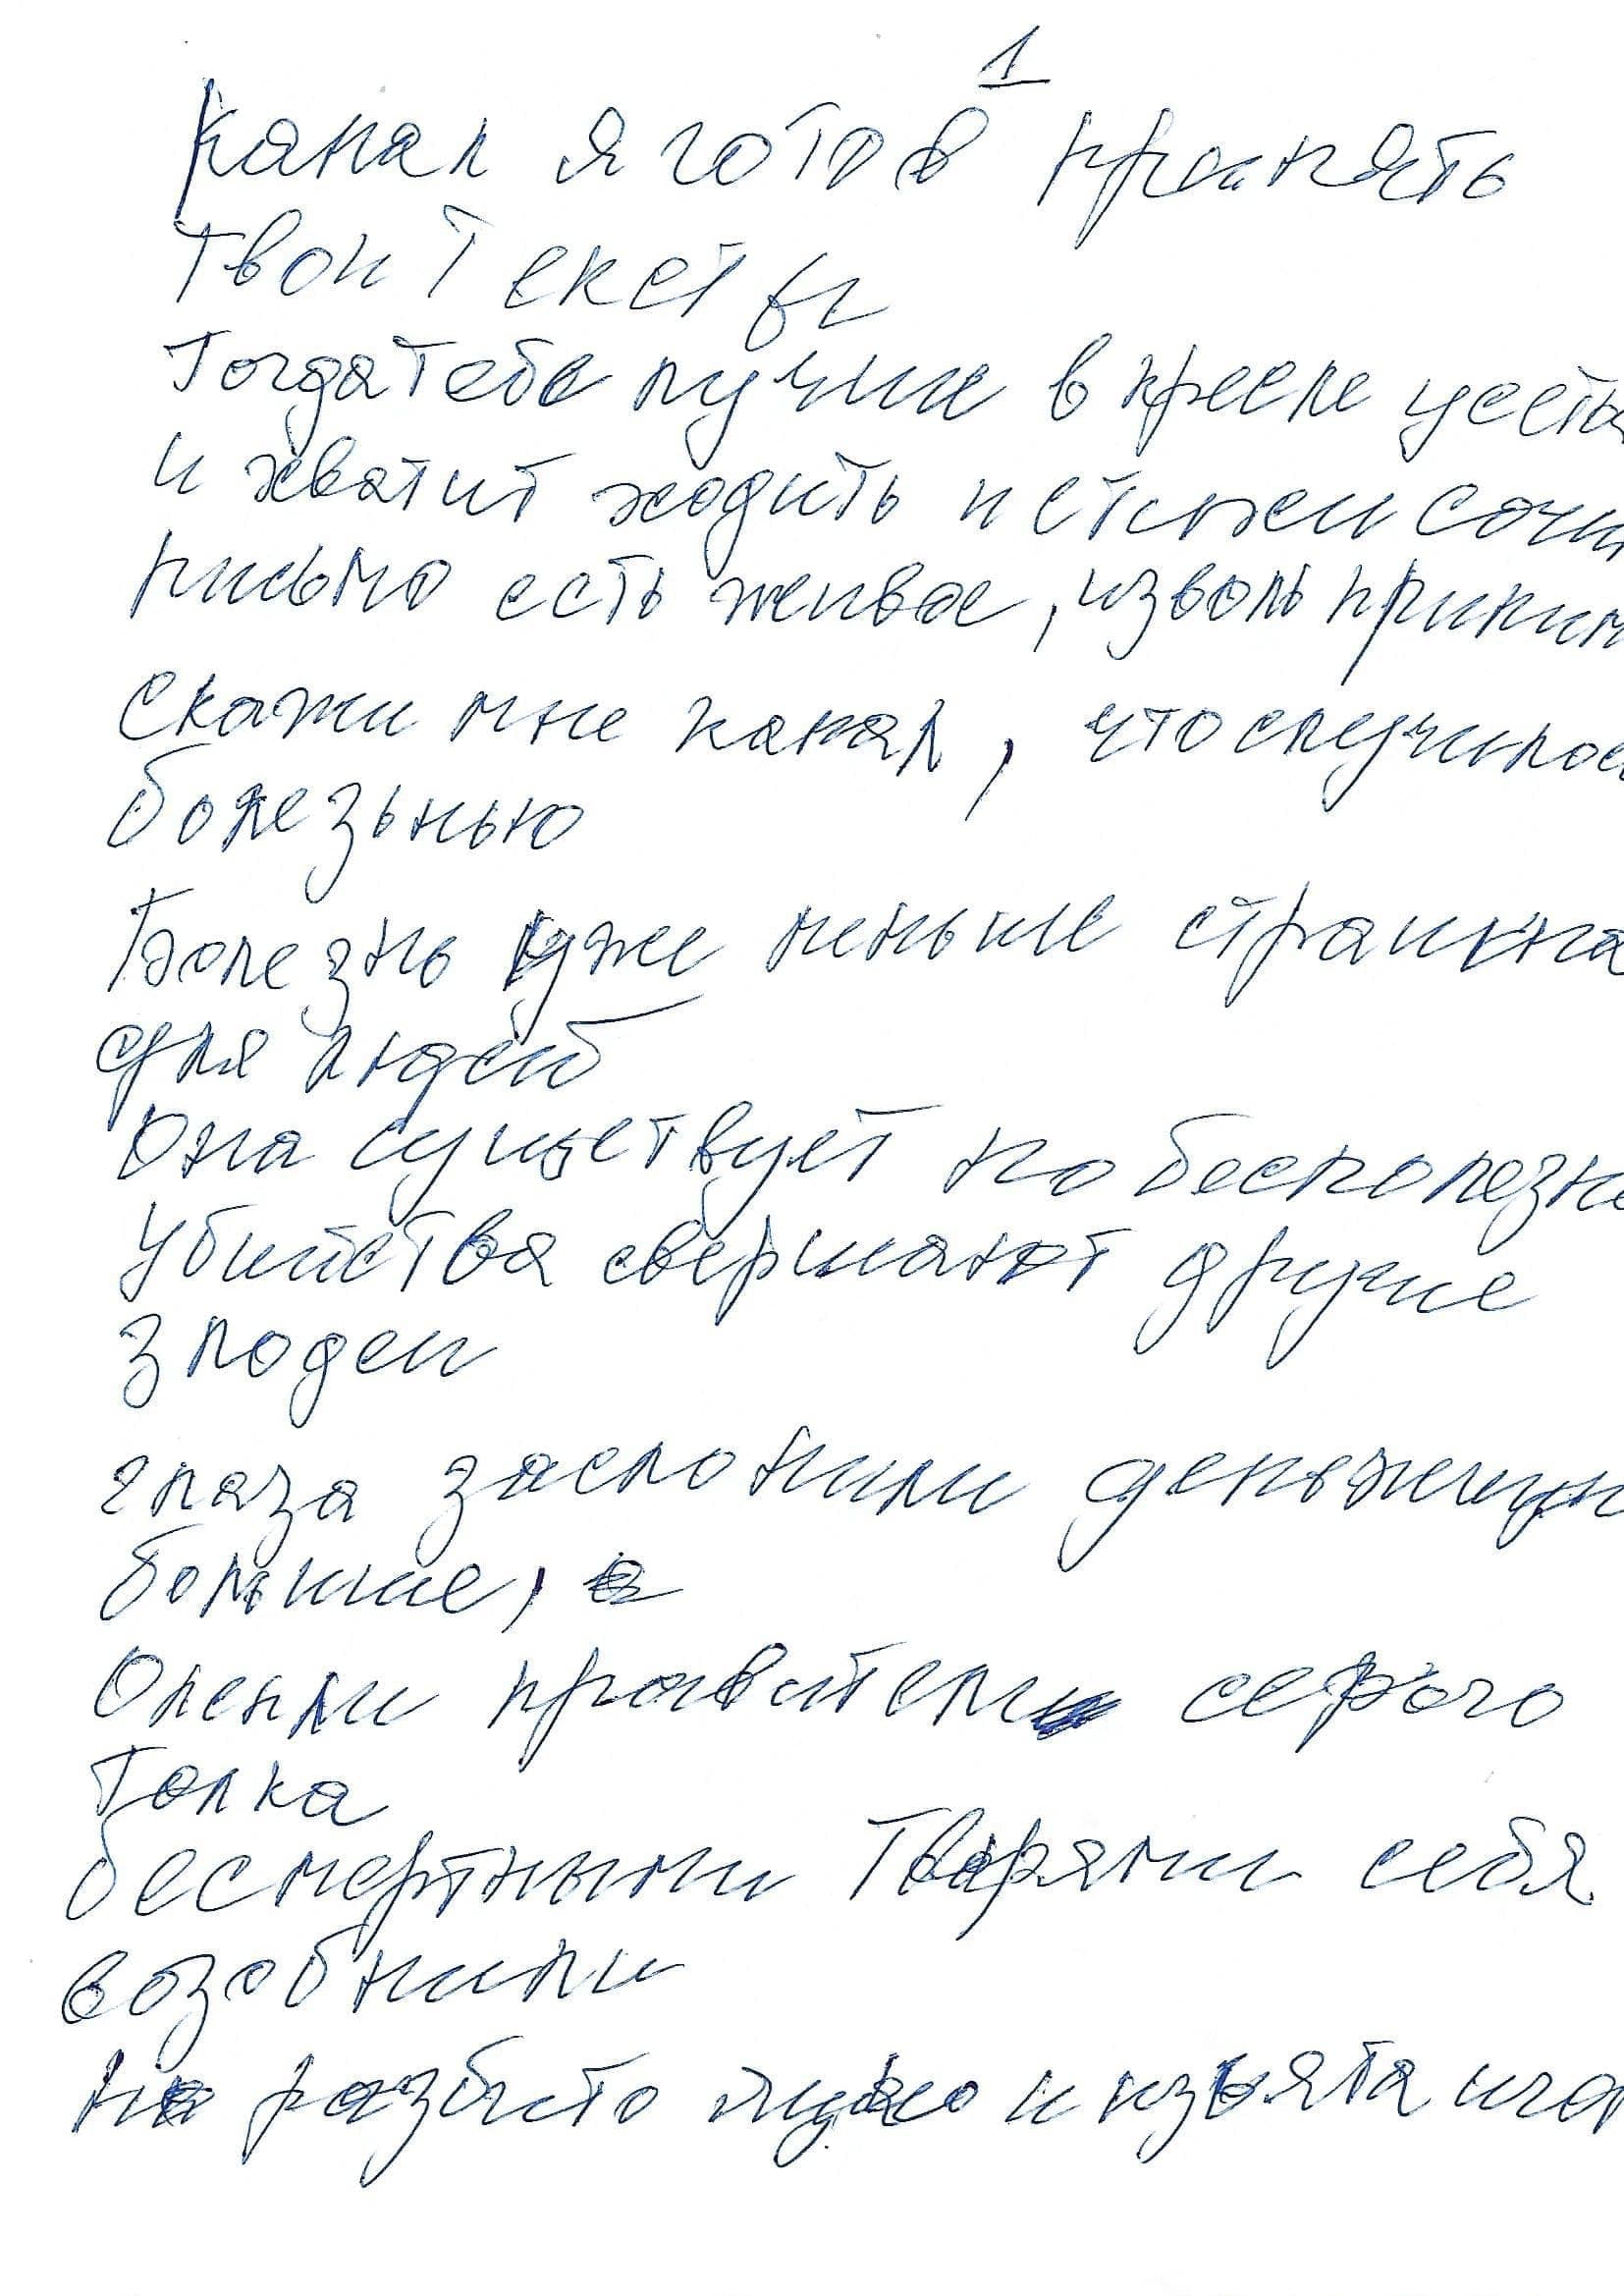 1
Канал я готов принять
твои тексты
Тогда тебе лучше в кресле усесться
и хватит ходить и
письмо есть живое, изволь приним
Скажи мне канал, что случилос
болезьнью
Болезнь уже меньше страшна
для людей
Она существует но бесполезн
Убийства свершают друже
злодеи
глаза заслонили
больше,
Оленли правители серого
толка
бесмертными Творями себя
возобнили
Но разбито и изъята